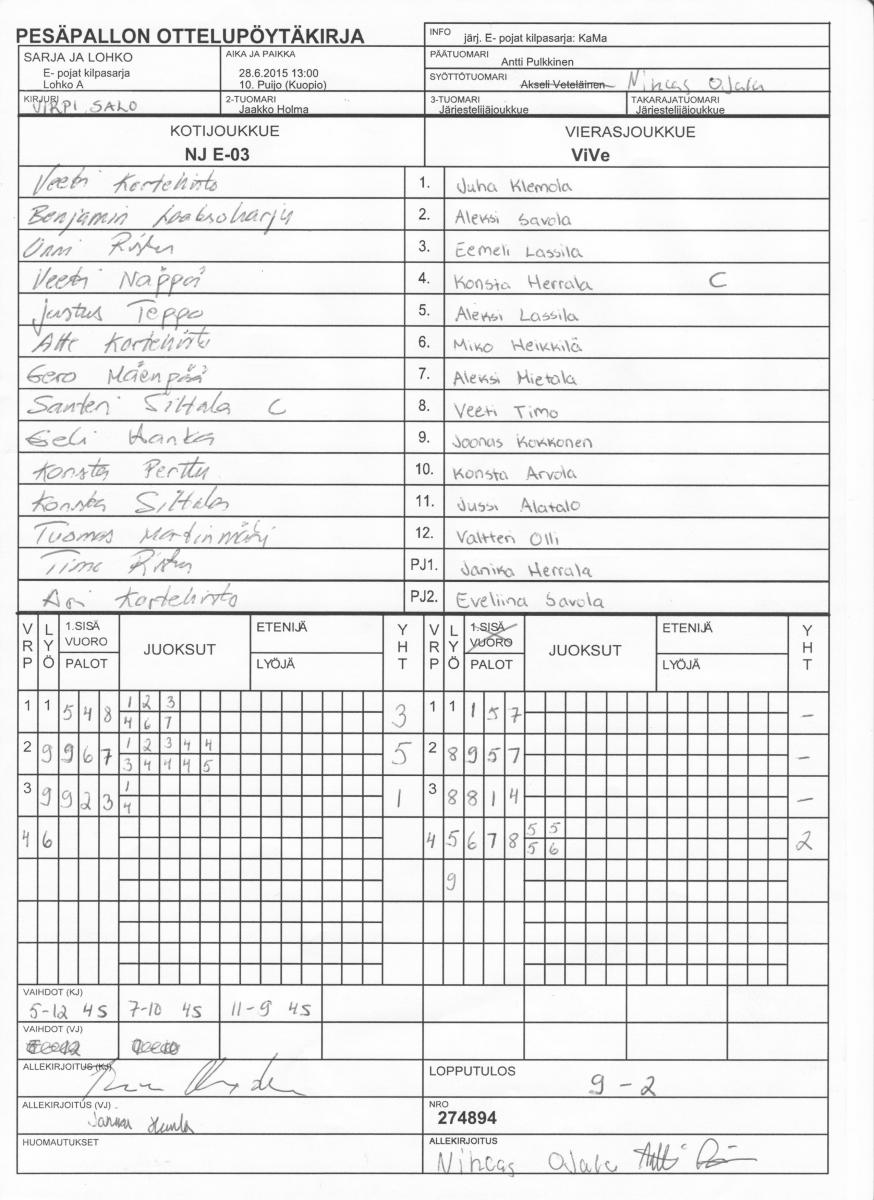 PESÄPALLON OTTELUPÖYTÄKIRJA
INFO järj. E- pojat kilpasarja: KaMa
SARJA JA LOHKO
E- pojat kilpasarja
Lohko A
AIKA JA PAIKKA
28.6.2015 13:00
10. Puijo (Kuopio)
PÄÄTUOMARI Antti Pulkkinen
SYÖTTÖTUOMARI Akseli Veteläinen
KIRJURI VIRPI SALO
2-TUOMARI Jaakko Holma
3-TUOMARI Järjestelijäjoukkue
TAKARAJATUOMARI Järjestelijäjoukkue
KOTIJOUKKUE VIERASJOUKKUE
NJ E-03 ViVe
Veeti Kortehisto 1. Juha Klemola
Benjamin Laaksoharju 2. Aleksi Savola
Onni 3. Eemeli Lassila
Veeti Näppä 4. Konsta Herrala C
Justus Teppo 5. Aleksi Lassila
Atte Kortehisto 6. Miko Heikkilä
Eero Mäenpää 7. Aleksi Mietala
Santeri Siltala C 8. Veeti Timo
Eeli Hanka 9. Joonas Kokkonen
Konsta Perttu 10. Konsta Arvola
Konsta Siltala 11. Jussi Alatalo
Tuomas Martinmäki 12. Valtteri Olli
Timo PJ1. Janika Herrala
Ari Kortehisto PJ2. Eveliina Savola
VRP LYÖ 1.SISÄ VUORO PALOT JUOKSUT ETENIJÄ LYÖJÄ YHT VRP LYÖ 1.SISÄ VUORO PALOT JUOKSUT ETENIJÄ LYÖJÄ YHT
1 1 5 4 8 1 2 3 3 1 1 1 5 7 -
4 6 7
2 9 9 6 7 1 2 3 4 4 5 2 8 9 5 7 -
3 4 4 4 5
3 9 9 2 3 1 1 3 8 8 1 4 -
4
4 6 4 5 6 7 8 5 5 2
5 6
9
VAIHDOT (KJ)
5-12 45 7-10 45 11-9 45
VAIHDOT (VJ)
ALLEKIRJOITUS (KJ)
LOPPUTULOS 9 - 2
ALLEKIRJOITUS (VJ)
NRO
274894
HUOMAUTUKSET
ALLEKIRJOITUS